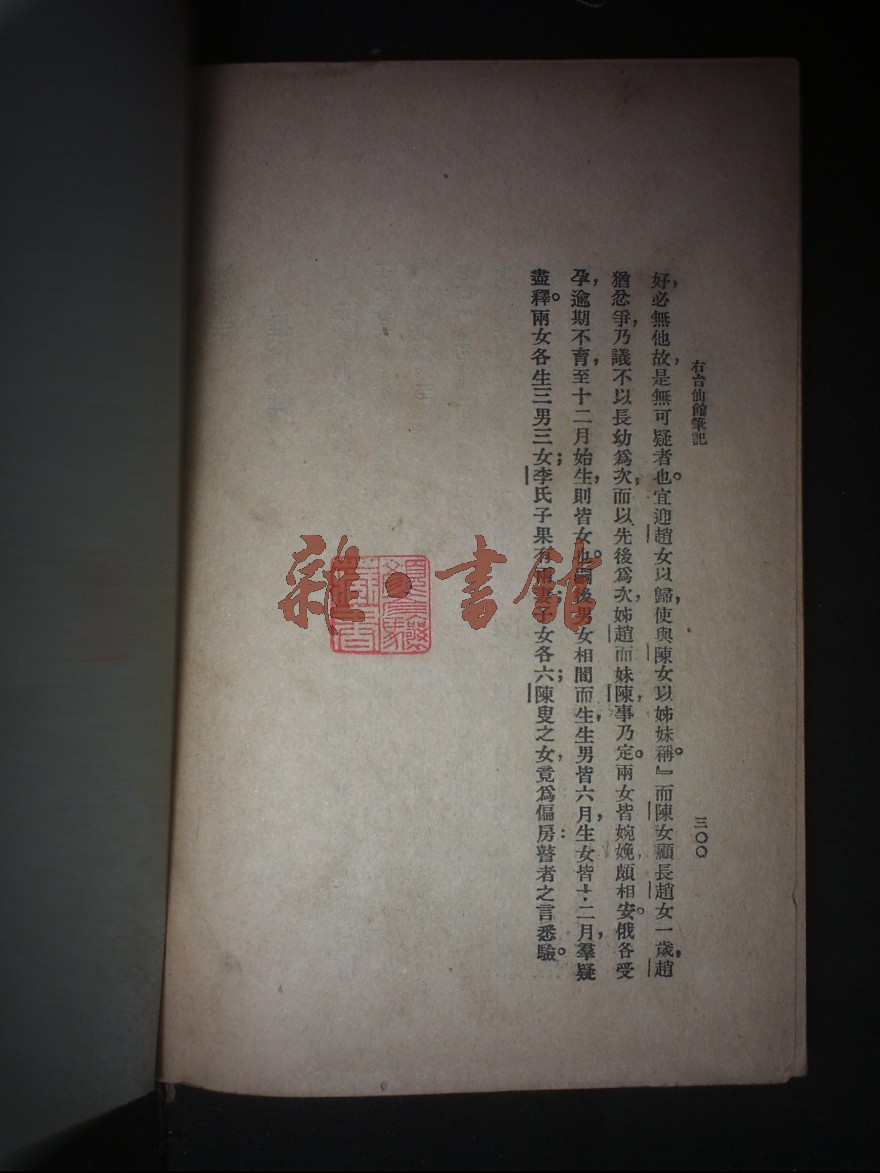 右台仙館筆記
三〇〇
好，必無他故，是無可疑者也。宜迎趙女以歸，使與陳女以姊妹稱。』而陳女顧長趙女一歲，趙
猶忿爭，乃議不以長幼爲次，而以先後爲次，姊趙而妹陳，事乃定。兩女皆婉娩，頗相安。俄各受
孕，逾期不育，至十二月始生，則皆女也。嗣後男女相間而生，生男皆六月，生女皆十二月，羣疑
盡釋。兩女各生三男三女；李氏子果有兩妻；子女各六；陳叟之女，竟爲偏房：瞽者之言悉驗。
雜·書館